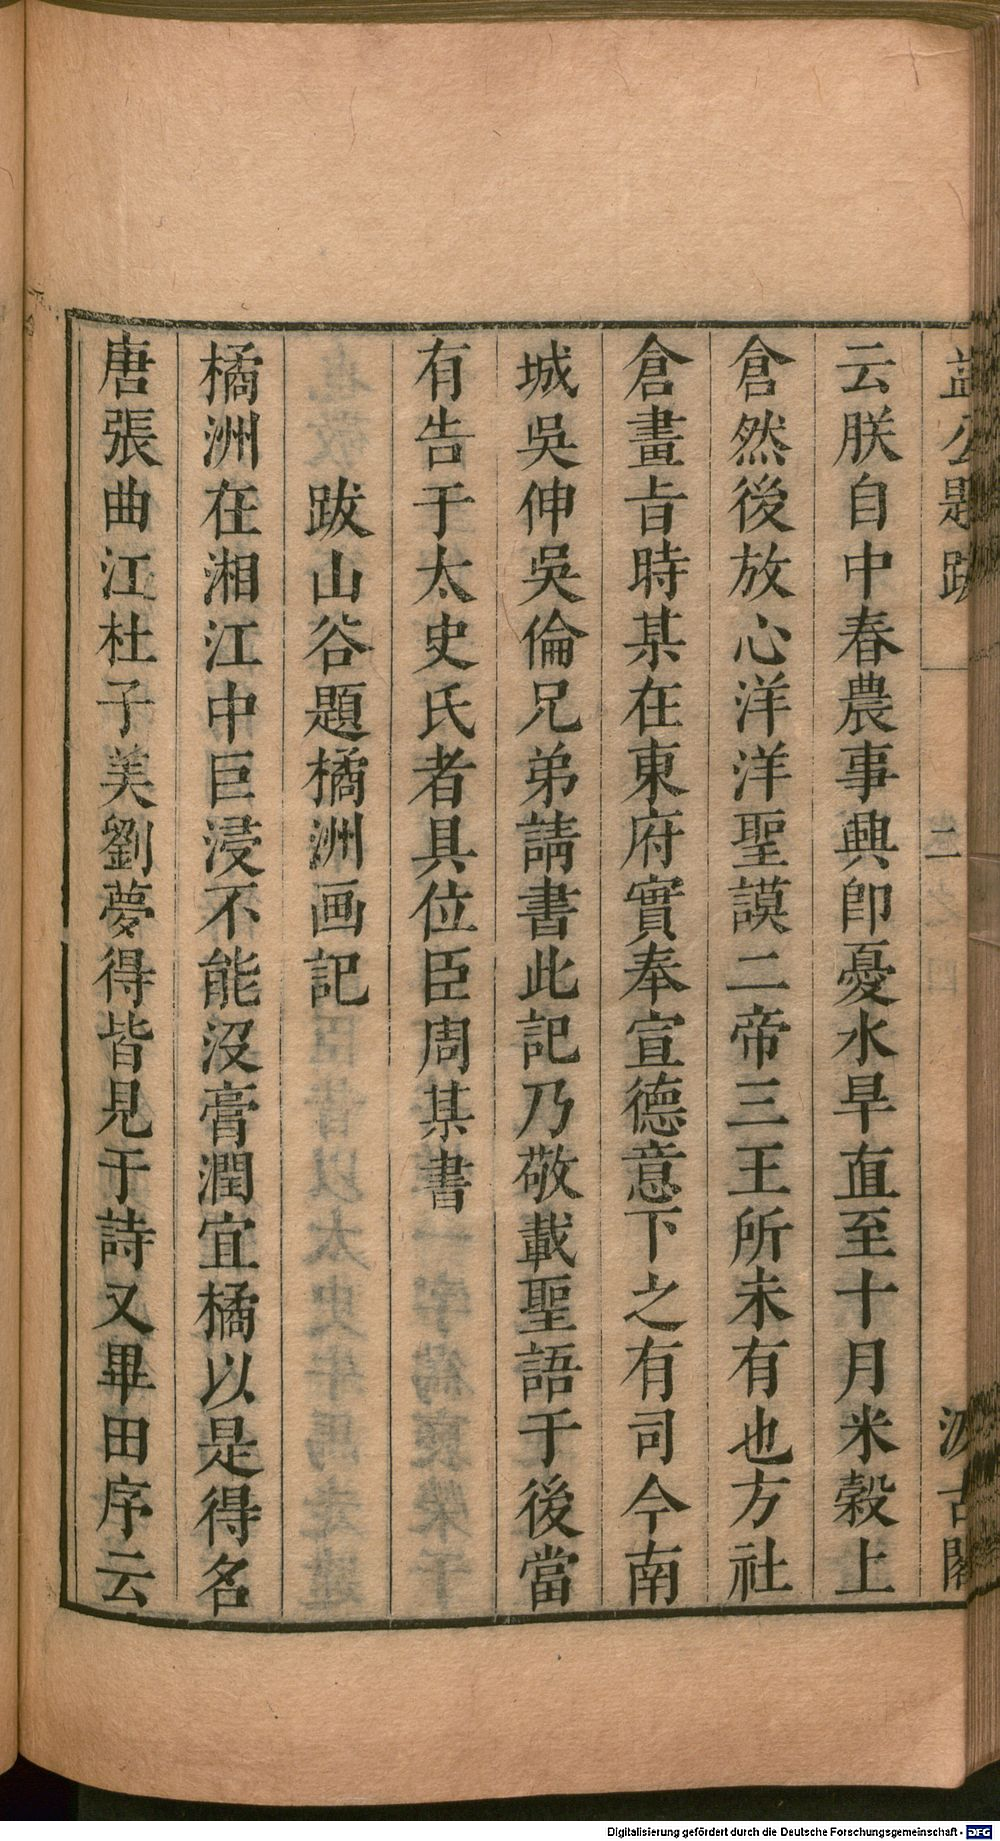 益公題跋
二
汲古閣
云朕自中春農事興卽憂水旱直至十月米穀上
倉然後放心洋洋聖謨二帝三王所未有也方社
倉畫旨時某在東府實奉宣德意下之有司今南
城吳伸吳倫兄弟請書此記乃敬載聖語于後當
有告于太史氏者具位臣周某書
跋山谷題橘洲画記
橘洲在湘江中巨浸不能沒膏潤宜橘以是得名
唐張曲江杜子美劉夢得皆見于詩又畢田序云
Digitalisierung gefördert durch die Deutsche Forschungsgemeinschaft - DFG